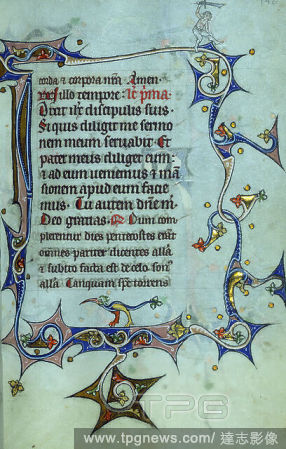 corda & corpora nra. Amen.
Dixit ihc discipulis suis.
Siquis diligit me sermo
nem meum servabit. Et
pater meus diliget eum:
& ad eum veniemus & mā
sionem apud eum facie
mus. Tu autem dne m.
Deo gratias. Dum com
plerentur dies pentecostes erāt
omnes pariter dicentes alla
& subito facta est de celo son
alla. Tanquam spc torrens
TPG
www.tpgnews.com/ 達志影像